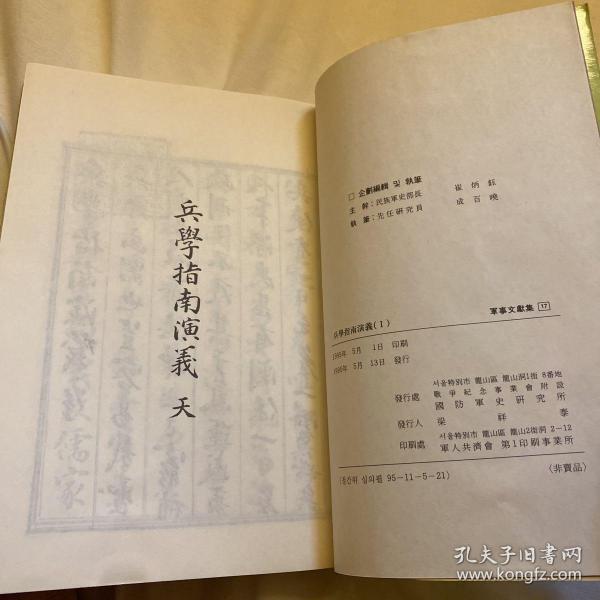 兵學指南演義 天
□ 企劃編輯 및 執筆
主幹:民族軍史部長 崔炳鈺
執筆:先任研究員 成百曉
軍事文獻集 17
兵學指南演義(Ⅰ)
1995年 5月 1日 印刷
1995年 5月 13日 發行
서울特別市 龍山區 龍山洞1街 8番地
戰爭紀念事業會附設
發行處 國防軍史研究所
發行人 梁祥泰
서울特別市 龍山區 龍山2街洞 2-12
印刷處 軍人共濟會 第1印刷事業所
(출간위 심의필 95-11-5-21) 〈非賣品〉
孔夫子旧书网
www.kongfz.com